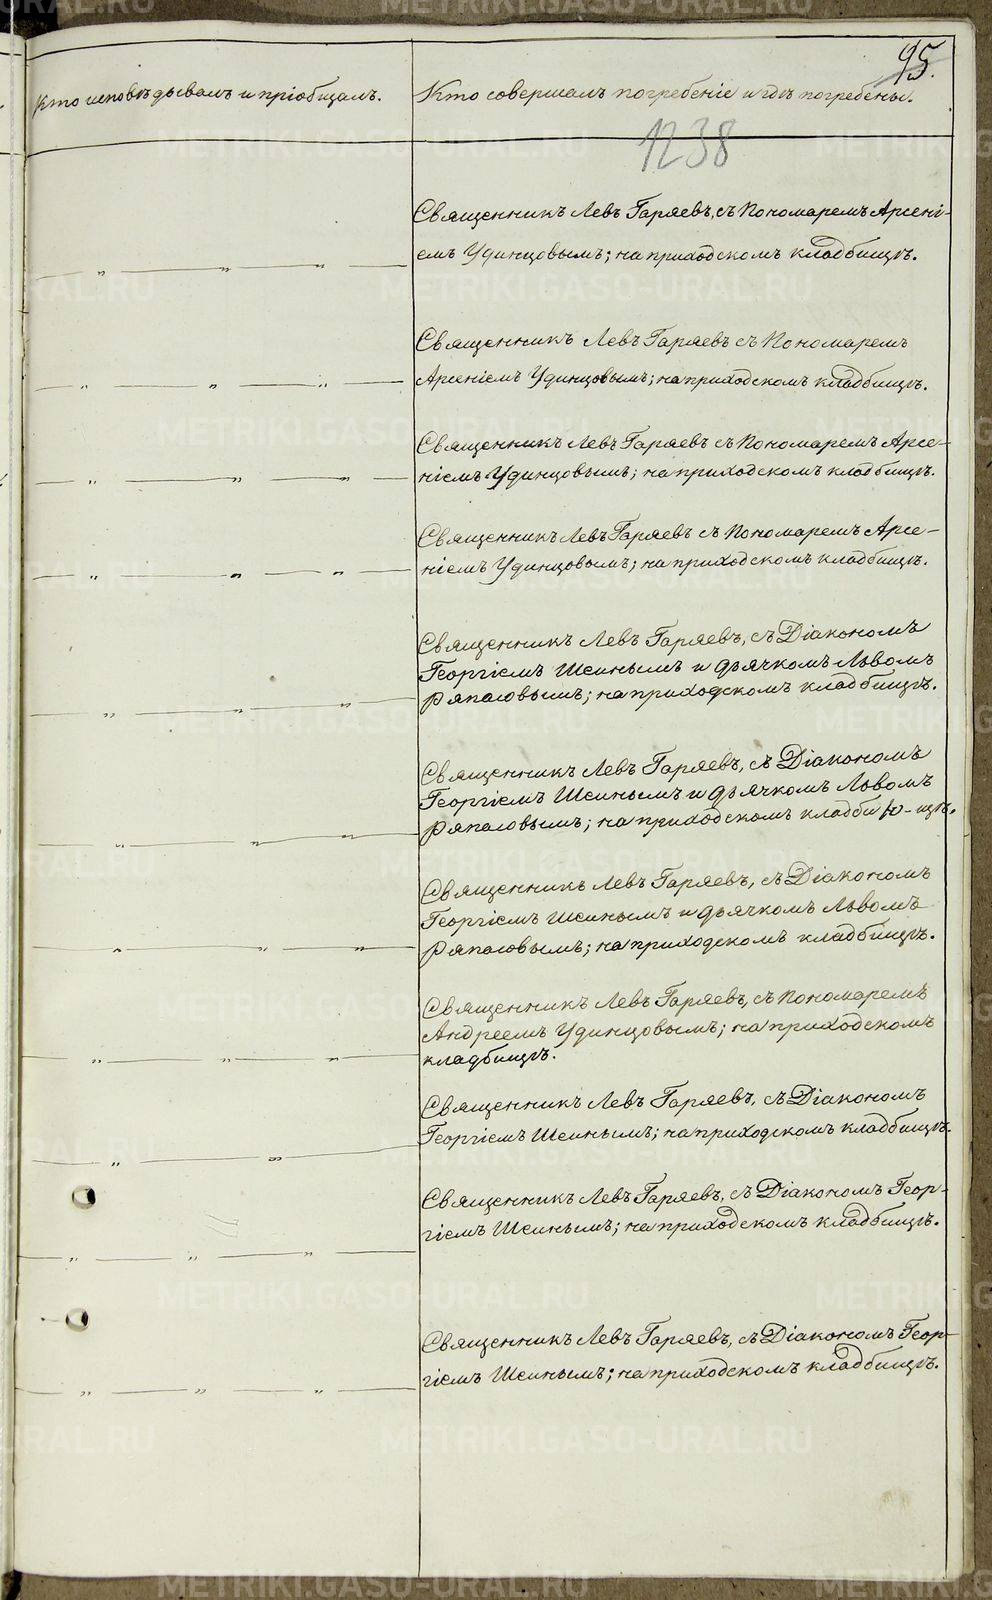 95.
Кто исповѣдывалъ и пріобщалъ.
Кто совершалъ погребеніе и гдѣ погребены.
1238
Священникъ Левъ Гаряевъ, съ Пономаремъ Арсені-
емъ Удинцовымъ; на приходскомъ кладбищѣ.
Священникъ Левъ Гаряевъ съ Пономаремъ
Арсеніемъ Удинцовымъ; на приходскомъ кладбищѣ.
Священникъ Левъ Гаряевъ съ Пономаремъ Арсе-
ніемъ Удинцовымъ; на приходскомъ кладбищѣ.
Священникъ Левъ Гаряевъ съ Пономаремъ Арсе-
ніемъ Удинцовымъ; на приходскомъ кладбищѣ.
Священникъ Левъ Гаряевъ, съ Діакономъ
Георгіемъ Шеинымъ и дьячкомъ Львомъ
Ряпасовымъ; на приходскомъ кладбищѣ.
Священникъ Левъ Гаряевъ, съ Діакономъ
Георгіемъ Шеинымъ и дьячкомъ Львомъ
Ряпасовымъ; на приходскомъ кладби-щѣ.
Священникъ Левъ Гаряевъ, съ Діакономъ
Георгіемъ Шеинымъ и дьячкомъ Львомъ
Ряпасовымъ; на приходскомъ кладбищѣ.
Священникъ Левъ Гаряевъ, съ Пономаремъ
Андреемъ Удинцовымъ; на приходскомъ
кладбищѣ.
Священникъ Левъ Гаряевъ, съ Діакономъ
Георгіемъ Шеинымъ; на приходскомъ кладбищѣ.
Священникъ Левъ Гаряевъ, съ Діакономъ Геор-
гіемъ Шеинымъ; на приходскомъ кладбищѣ.
Священникъ Левъ Гаряевъ, съ Діакономъ Геор-
гіемъ Шеинымъ; на приходскомъ кладбищѣ.
METRIKI.GASO-URAL.RU